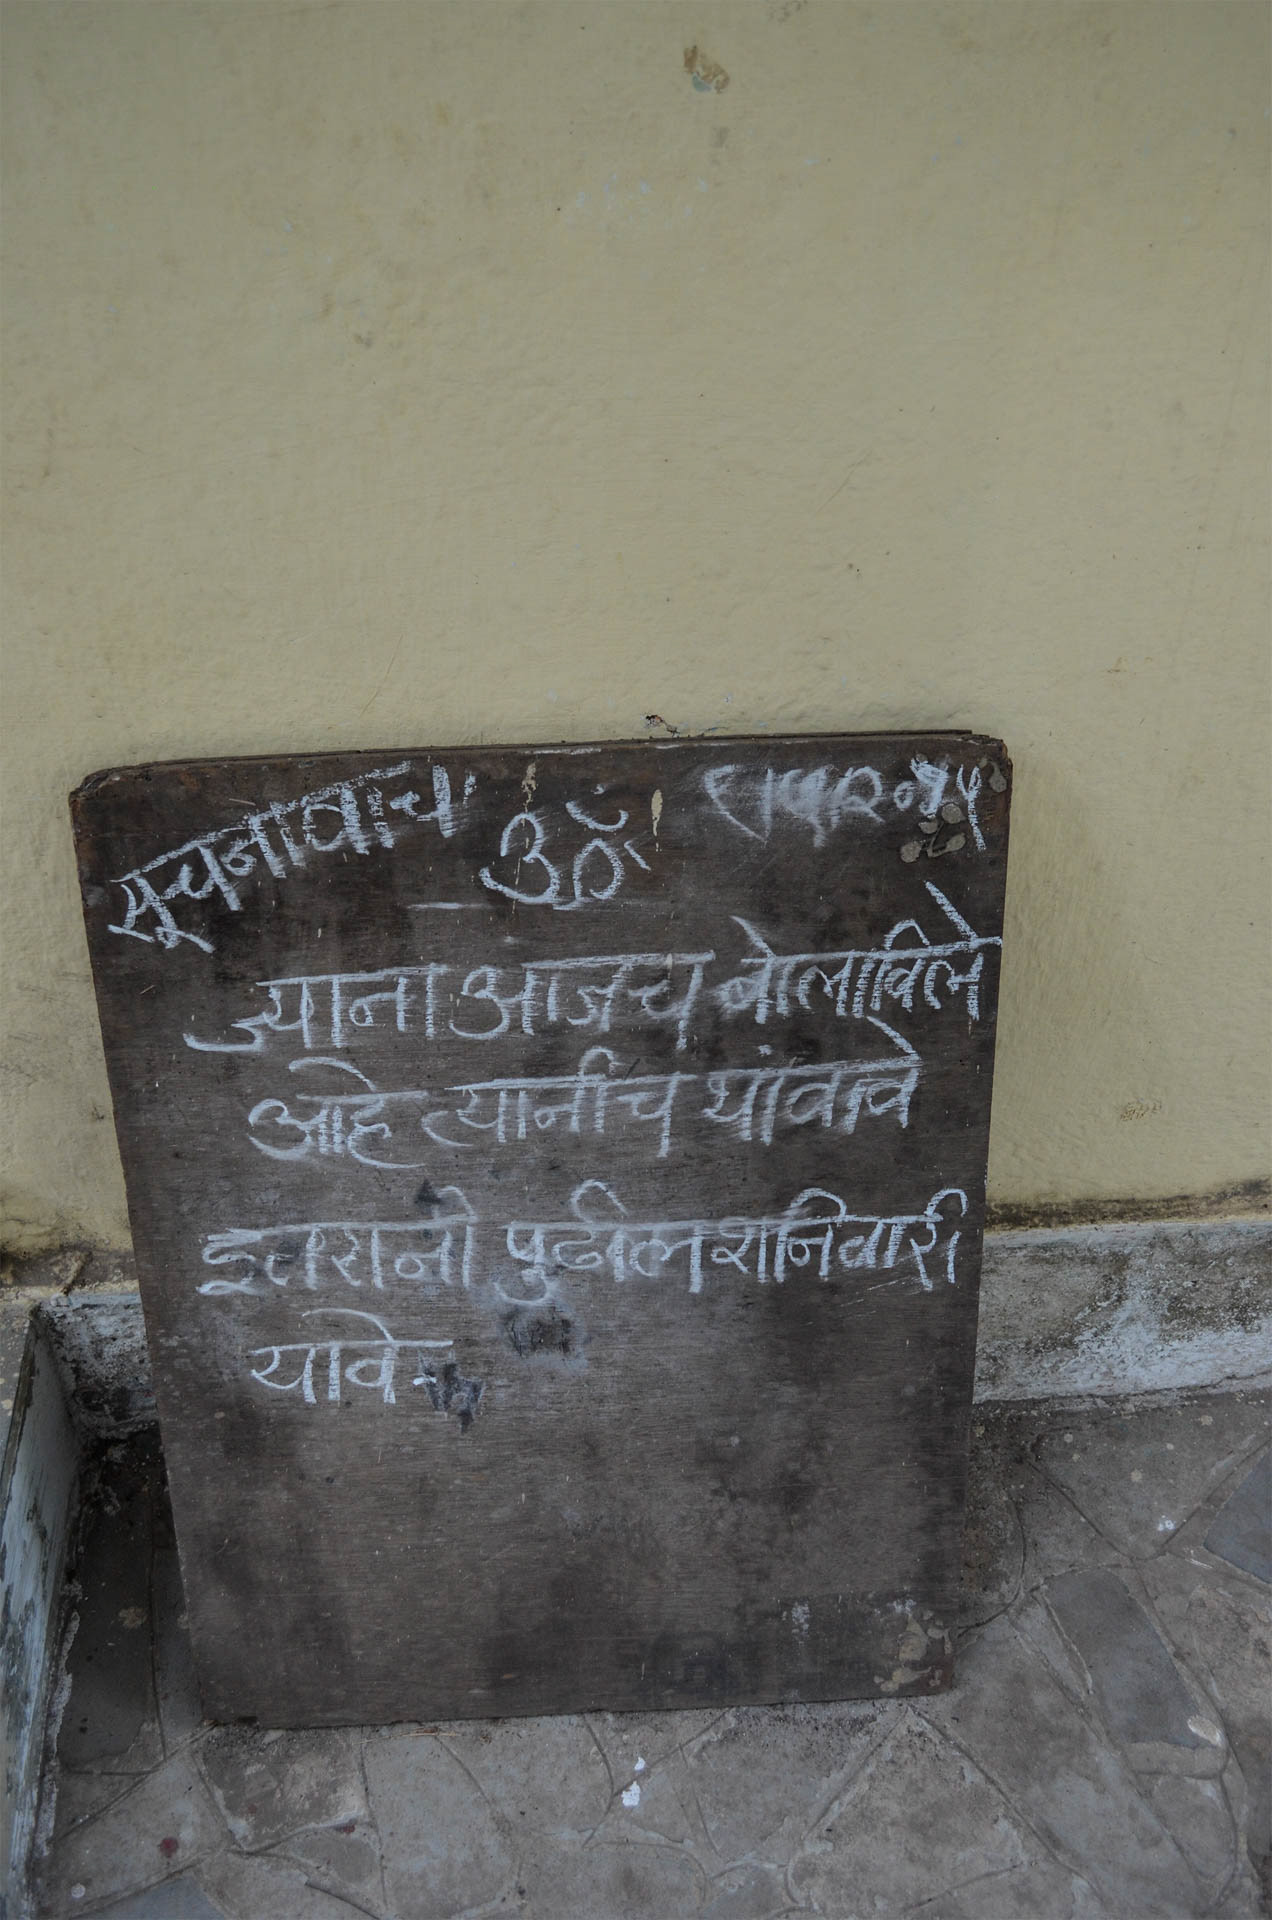 सूचनावाच
ॐ
ज्याना आजच बोलाविले
आहे त्यानीच थांवावे
इतरानी पुढील शनिवारी
यावे-